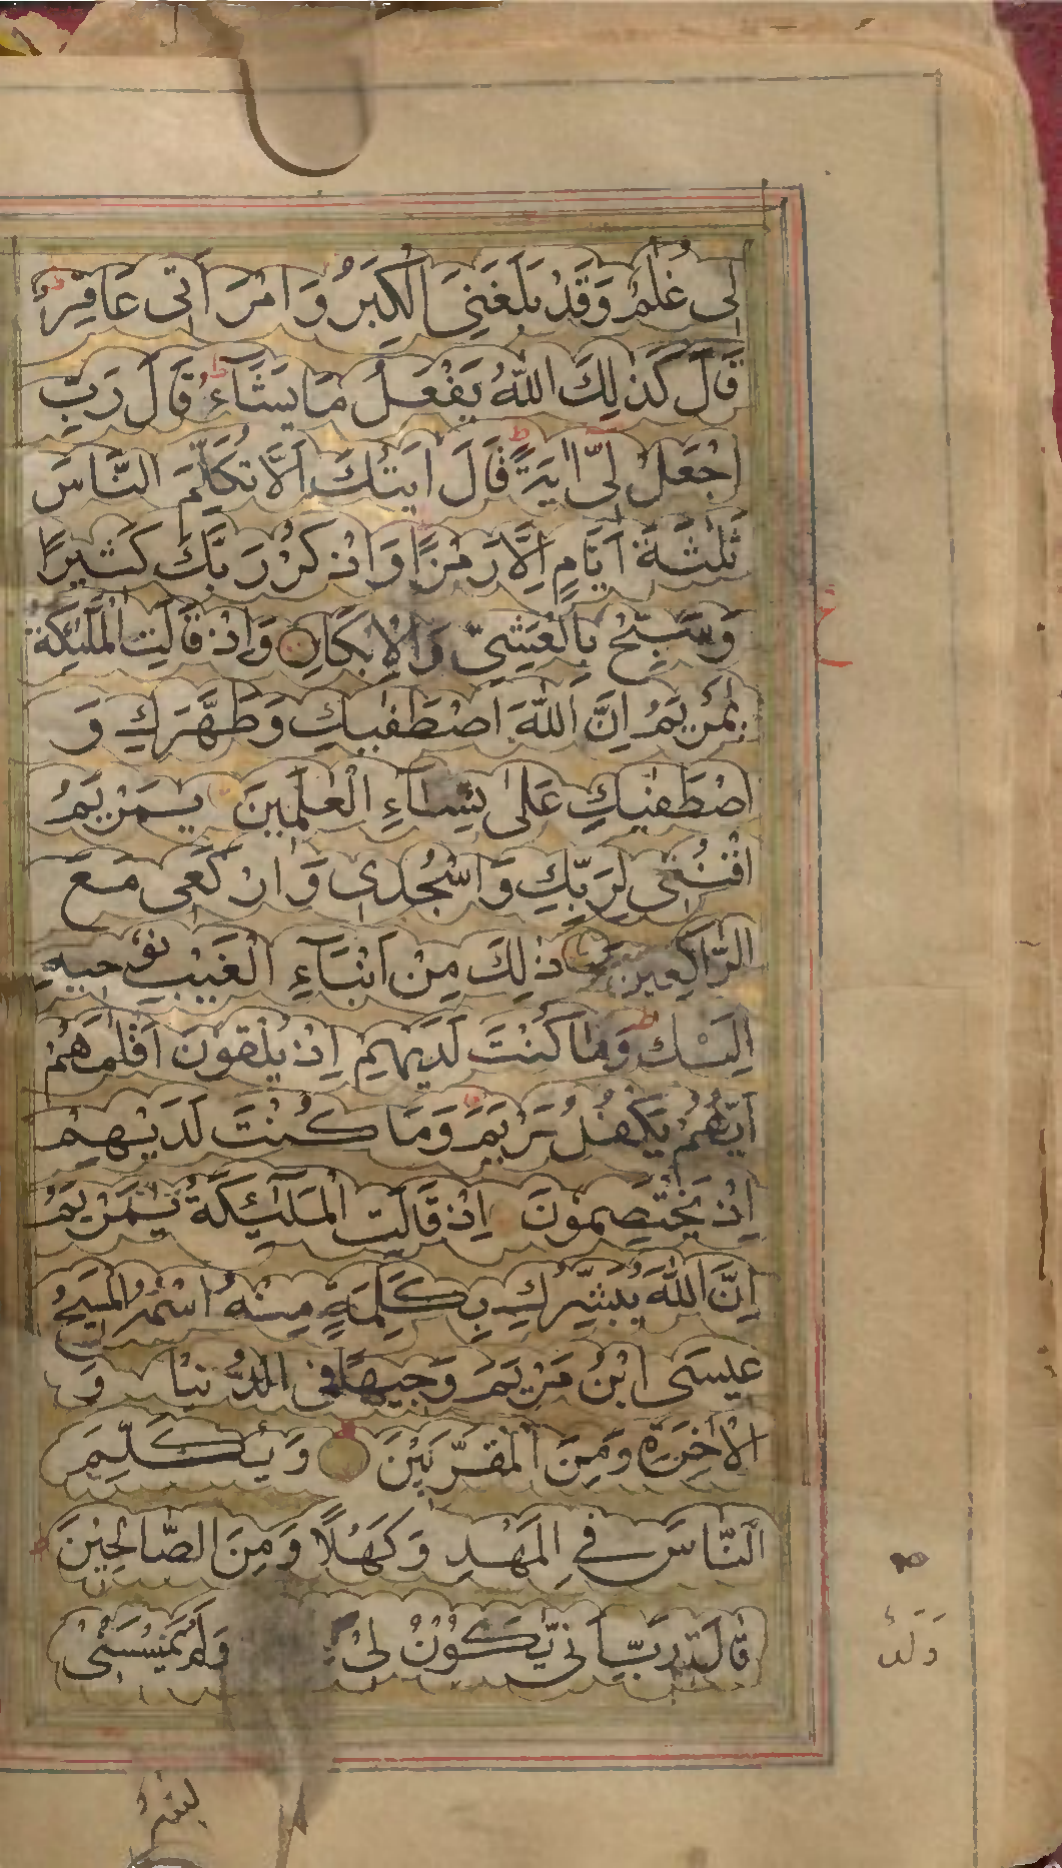 لِى غُلٰمٌ وَقَدْ بَلَغَنِىَ الْكِبَرُ وَامْرَاَتِى عَاقِرٌ ط
قَالَ كَذٰلِكَ اللّٰهُ يَفْعَلُ مَا يَشَآءُ ط قَالَ رَبِّ
اجْعَلْ لِىٓ اٰيَةً ط قَالَ اٰيَتُكَ اَلَّا تُكَلِّمَ النَّاسَ
ثَلٰثَةَ اَيَّامٍ اِلَّا رَمْزًا وَاذْكُرْ رَبَّكَ كَثِيرًا
وَسَبِّحْ بِالْعَشِىِّ وَالْاِبْكَارِ وَاِذْ قَالَتِ الْمَلٰٓئِكَةُ
يٰمَرْيَمُ اِنَّ اللّٰهَ اصْطَفٰيكِ وَطَهَّرَكِ وَ
اصْطَفٰيكِ عَلٰى نِسَآءِ الْعٰلَمِينَ يٰمَرْيَمُ
اقْنُتِى لِرَبِّكِ وَاسْجُدِى وَارْكَعِى مَعَ
الرَّاكِعِينَ ذٰلِكَ مِنْ اَنْبَآءِ الْغَيْبِ نُوحِيهِ
اِلَيْكَ ط وَمَا كُنْتَ لَدَيْهِمْ اِذْ يُلْقُونَ اَقْلَامَهُمْ
اَيُّهُمْ يَكْفُلُ مَرْيَمَ وَمَا كُنْتَ لَدَيْهِمْ
اِذْ يَخْتَصِمُونَ اِذْ قَالَتِ الْمَلٰٓئِكَةُ يٰمَرْيَمُ
اِنَّ اللّٰهَ يُبَشِّرُكِ بِكَلِمَةٍ مِنْهُ اسْمُهُ الْمَسِيحُ
عِيسَى ابْنُ مَرْيَمَ وَجِيهًا فِى الدُّنْيَا وَ
الْاٰخِرَةِ وَمِنَ الْمُقَرَّبِيْنَ وَيُكَلِّمُ
النَّاسَ فِى الْمَهْدِ وَكَهْلًا وَمِنَ الصَّالِحِيْنَ
قَالَتْ رَبِّ اَنّٰى يَكُوْنُ لِىْ وَلَمْ يَمْسَسْنِىْ
وَلَدٌ
بشرٌ